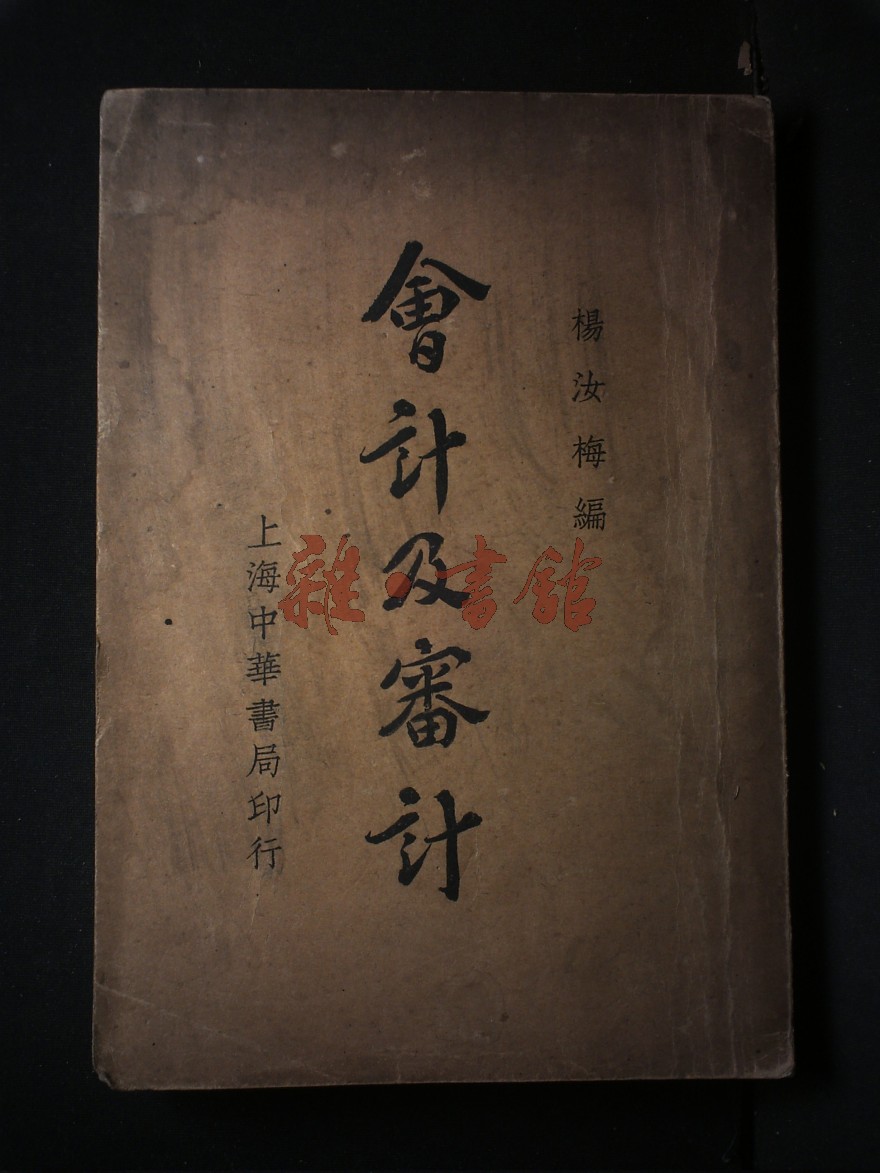 楊汝梅編
會計及審計
上海中華書局印行
雜•書館